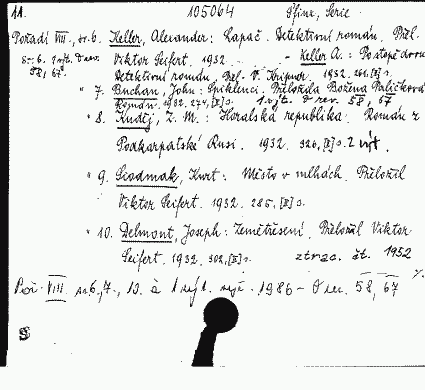 11. 105064 Sfinx, Serie
Pořadí VIII, sv. 6. Keller, Alexander: Lupač. Detektivní román. Přel.
Sv. 6. 1 výt. d rev. 58, 67 Viktor Seifert. 1932. - Keller A.: Po stopě
Detektivní román. Přel. V. 1932. [II] s.
" 7. Buchan, John: Špiklenci. Přeložila Božena
Román. 1932. 274, [II] s. 1 výt. d rev. 58, 67
" 8. Z. M.: Horalská republika. Román z
Podkarpatské Rusi. 1932. 320, [II] s. 2 výt.
" 9. Siodmak, Kurt: Město v mlhách. Přeložil
Viktor Seifert. 1932. 285, [II] s.
" 10. Delmont, Joseph: Zemětřesení. Přeložil Viktor
Seifert. 1932. 302, [II] s. ztrac. čt. 1952
Poř. VIII. sv. 6, 7, 13. à 1 výt. 1986 - rev. 58, 67
S